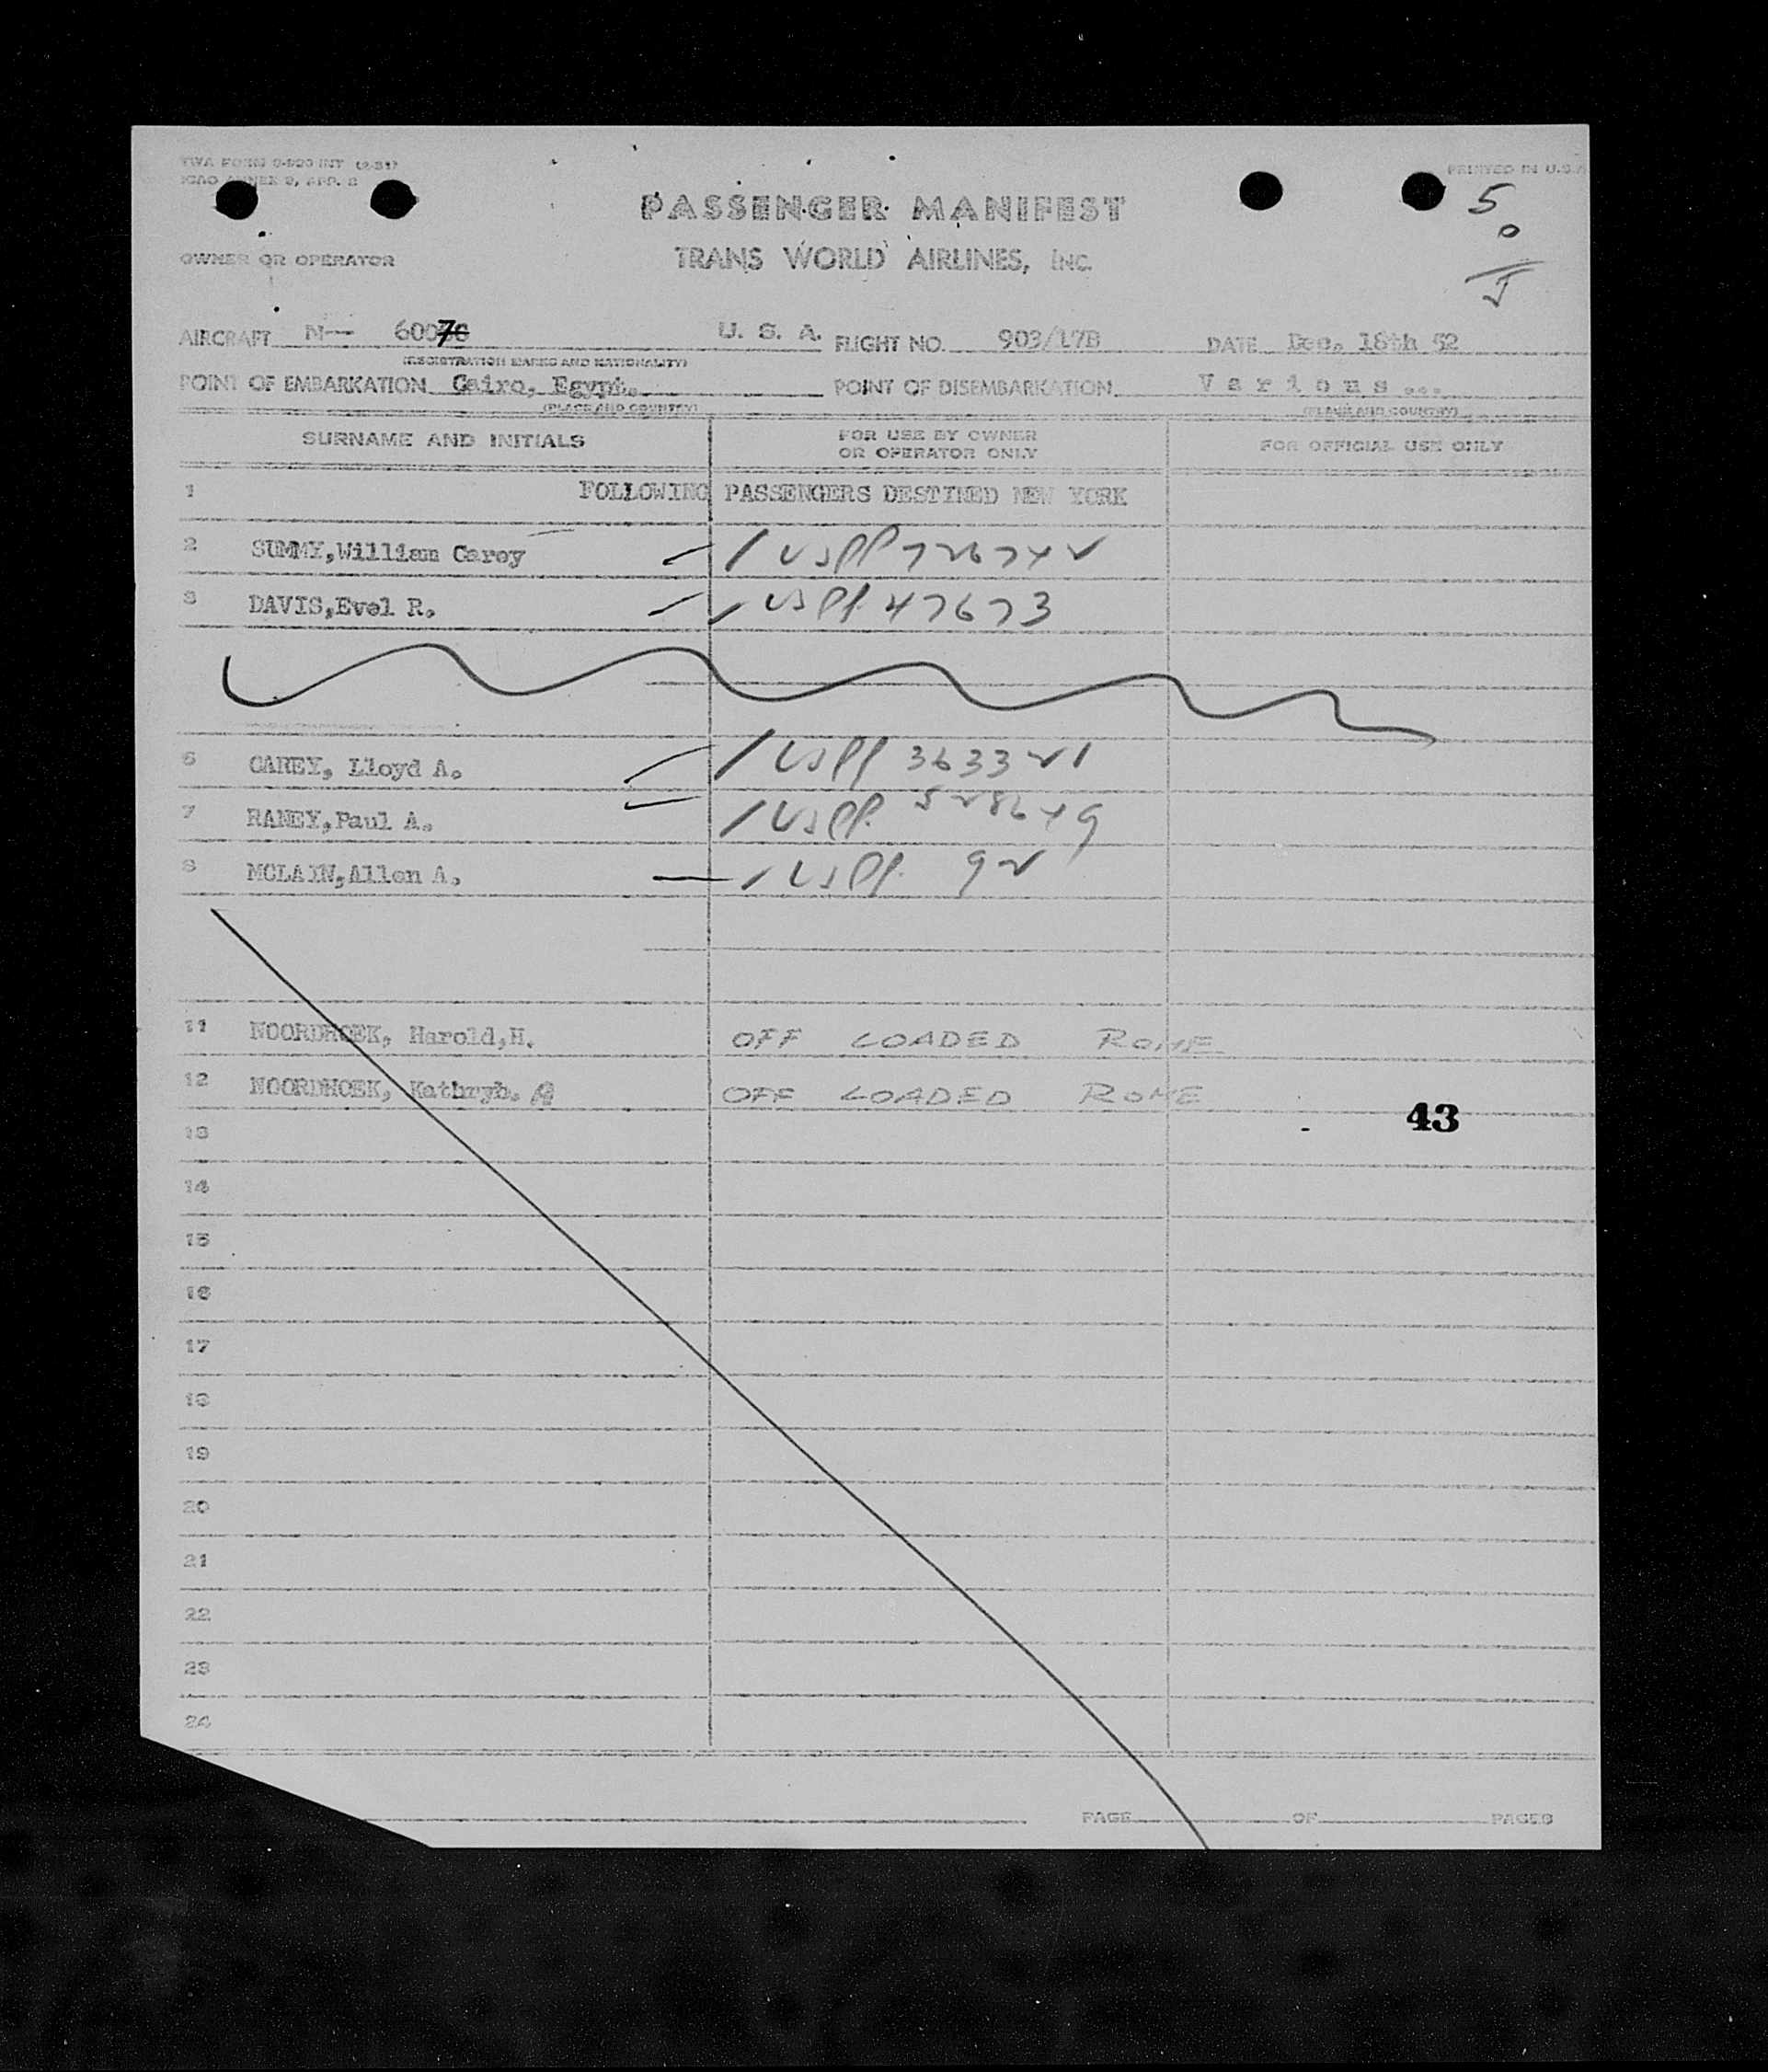 TWA FORM 0-920 INT (2-51)
ICAO ANNEX 9, APP. 2
PRINTED IN U.S.A.
5
0
5
PASSENGER MANIFEST
OWNER OR OPERATOR TRANS WORLD AIRLINES, INC.
AIRCRAFT N— 6007 U. S. A. FLIGHT NO. 903/17B DATE Dec. 18th 52
(REGISTRATION MARKS AND NATIONALITY)
POINT OF EMBARKATION Cairo, Egypt. POINT OF DISEMBARKATION Various...
(PLACE AND COUNTRY) (PLACE AND COUNTRY)
SURNAME AND INITIALS FOR USE BY OWNER OR OPERATOR ONLY FOR OFFICIAL USE ONLY
1 FOLLOWING PASSENGERS DESTINED NEW YORK
2 SUMMY,William Carey / USPP
3 DAVIS,Evel R. / USPP 47673
6 CAREY, Lloyd A. / USPP 363321
7 RANEY,Paul A. / USPP.
8 MCLAIN,Allen A. / USPP. 92
11 NOORDHOEK, Harold,H. OFF LOADED ROME
12 NOORDHOEK, Kathryh. A OFF LOADED ROME
43
13
14
15
16
17
18
19
20
21
22
23
24
PAGE OF PAGES